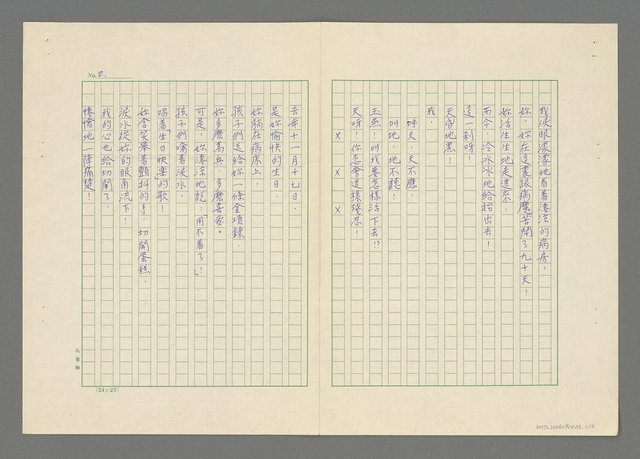 我淚眼濛濛地看著淒涼的病房，
妳，妳在這裏跟病魔苦鬥了九十天！
妳活生生地走進來，
而今，冷冰冰地給抬出去！
這一剎呀！
天昏地黑！
我，
呼天，天不應，
叫地，地不聽！
玉燕！叫我要怎樣活下去！？
天呀！你怎會這樣殘忍！
× × ×
No. 2.
去年十一月十七日，
是妳愉快的生日，
妳躺在病床上，
孩子們送給妳一條金項鍊，
妳多麼高興，多麼喜愛。
可是，妳淒涼地說：「用不着了！」
孩子們噙着淚水，
唱著生日快樂的歌！
妳含笑舉著顫抖的手，切開蛋糕，
淚水從妳的眼角流下！
我的心也給切開了，
悽愴地一陣痛楚！
孔雀牌
(24×25)